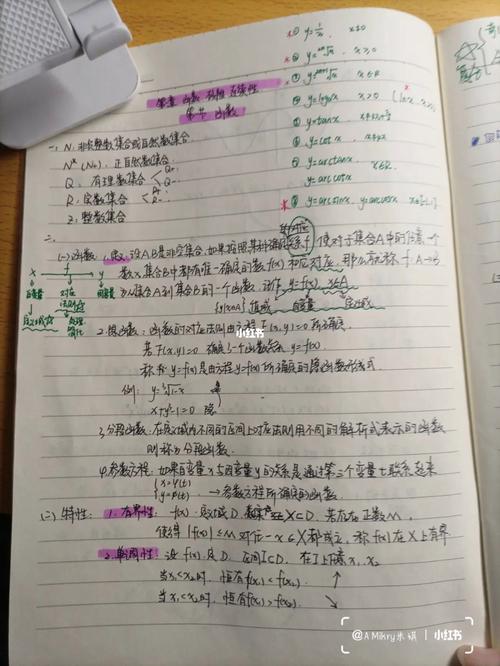 第一章 函数 极限 连续性
第一节 函数
一、N: 非负整数集合或自然数集合
N* (N+): 正自然数集合
Q: 有理数集合 Q+ Q-
R: 实数集合 R+ R-
Z: 整数集合
① y=1/x, x≠0
② y=2n√x, x≥0
③ y=2n+1√x x∈R
④ y=logₐx x>0 (lnx, x>0)
⑤ y=tanx
⑥ y=cotx,
⑦ y=arctanx x∈R
y=arccotx
⑧ y=arcsinx, y=arccosx x∈[-1,1]
二、
(一) 函数: 1.定义: 设A、B是非空集合, 如果按照某种确定的对应关系f, 使对于集合A中的任意一个
数x, 集合B中都有唯一确定的数f(x)和它对应, 那么就称 f: A→B
为从集合A到集合B的一个函数, 记作 y=f(x), x∈A
{y|x∈A} 值域 自变量 定义域
x f y
自变量 对应法则 因变量
定义域
2.隐函数: 函数的对应法则由方程F(x,y)=0所确定
若F(x,y)=0 确定了一个函数关系 y=f(x)
称 y=f(x)是由方程F(x,y)=0所确定的隐函数
例: y=³√1-x
x+y³-1=0 隐
3.分段函数: 在定义域内不同的区间上对应法则用不同的解析式表示的函数
则称为分段函数.
4.参数方程: 如果自变量x与因变量y的关系是通过第三个变量t联系起来
{x=φ(t)
{y=φ(t) → 参数方程所确定的函数
(二) 特性: 1.有界性: f(x)定义域D, 数集X⊂D. 若存在正数M,
使得 |f(x)|≤M 对任一x∈X都成立, 称f(x)在X上有界
2.单调性: 设f(x)定D, 区间I⊂D, 在I上任意x₁,x₂
当x₁<x₂时, 恒有f(x₁)<f(x₂). ↑
当x₁<x₂时, 恒有f(x₁)>f(x₂). ↘
小红书
@A Mikry米琪 小红书